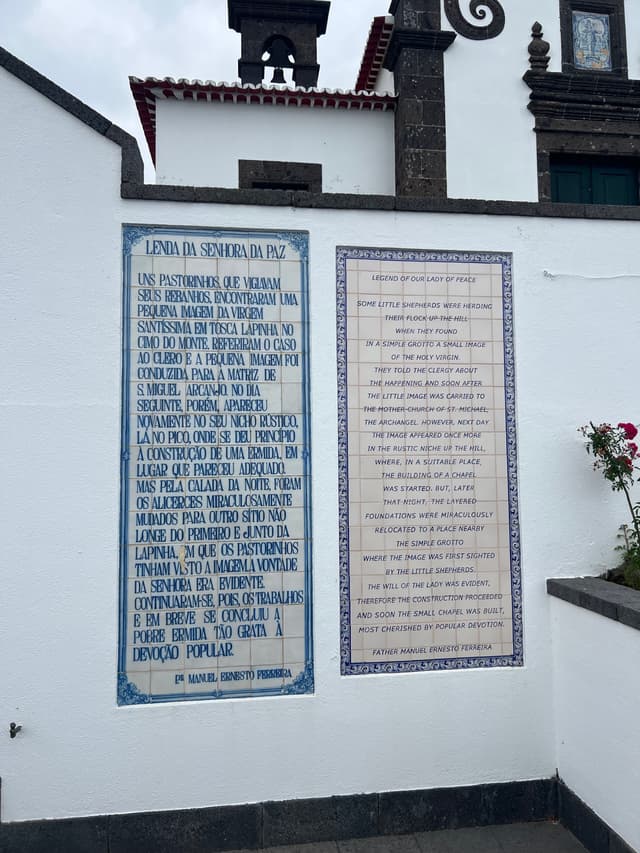 LENDA DA SENHORA DA PAZ
UNS PASTORINHOS, QUE VIGIAVAM
SEUS REBANHOS, ENCONTRARAM UMA
PEQUENA IMAGEM DA VIRGEM
SANTÍSSIMA EM TOSCA LAPINHA NO
CIMO DO MONTE. REFERIRAM O CASO
AO CLERO E A PEQUENA IMAGEM FOI
CONDUZIDA PARA A MATRIZ DE
S. MIGUEL ARCANJO. NO DIA
SEGUINTE, PORÉM, APARECEU
NOVAMENTE NO SEU NICHO RÚSTICO,
LÁ NO PICO, ONDE SE DEU PRINCÍPIO
À CONSTRUÇÃO DE UMA ERMIDA, EM
LUGAR QUE PARECEU ADEQUADO.
MAS PELA CALADA DA NOITE, FORAM
OS ALICERCES MIRACULOSAMENTE
MUDADOS PARA OUTRO SÍTIO NÃO
LONGE DO PRIMEIRO E JUNTO DA
LAPINHA, EM QUE OS PASTORINHOS
TINHAM VISTO A IMAGEM. A VONTADE
DA SENHORA ERA EVIDENTE.
CONTINUARAM-SE, POIS, OS TRABALHOS
E EM BREVE SE CONCLUIU A
POBRE ERMIDA TÃO GRATA À
DEVOÇÃO POPULAR.
Pᴱ MANUEL ERNESTO FERREIRA
LEGEND OF OUR LADY OF PEACE
SOME LITTLE SHEPHERDS WERE HERDING
THEIR FLOCK UP THE HILL
WHEN THEY FOUND
IN A SIMPLE GROTTO A SMALL IMAGE
OF THE HOLY VIRGIN.
THEY TOLD THE CLERGY ABOUT
THE HAPPENING AND SOON AFTER
THE LITTLE IMAGE WAS CARRIED TO
THE MOTHER-CHURCH OF ST. MICHAEL,
THE ARCHANGEL. HOWEVER, NEXT DAY
THE IMAGE APPEARED ONCE MORE
IN THE RUSTIC NICHE UP THE HILL,
WHERE, IN A SUITABLE PLACE,
THE BUILDING OF A CHAPEL
WAS STARTED. BUT, LATER
THAT NIGHT, THE LAYERED
FOUNDATIONS WERE MIRACULOUSLY
RELOCATED TO A PLACE NEARBY
THE SIMPLE GROTTO
WHERE THE IMAGE WAS FIRST SIGHTED
BY THE LITTLE SHEPHERDS.
THE WILL OF THE LADY WAS EVIDENT,
THEREFORE THE CONSTRUCTION PROCEEDED
AND SOON THE SMALL CHAPEL WAS BUILT,
MOST CHERISHED BY POPULAR DEVOTION.
FATHER MANUEL ERNESTO FERREIRA